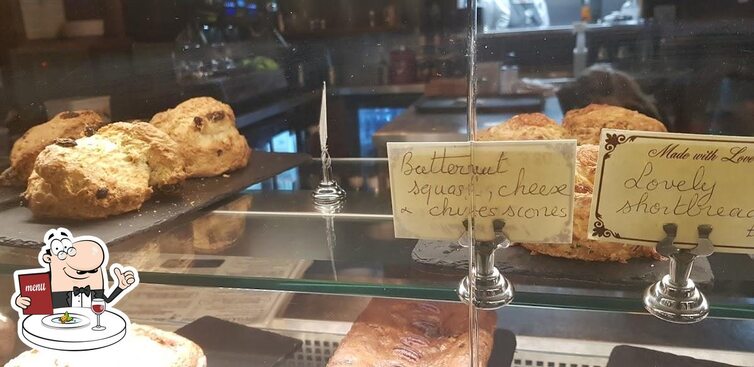 Butternut
squash, cheese
& chives scones
Made with Love
Lovely
shortbread
£
menu